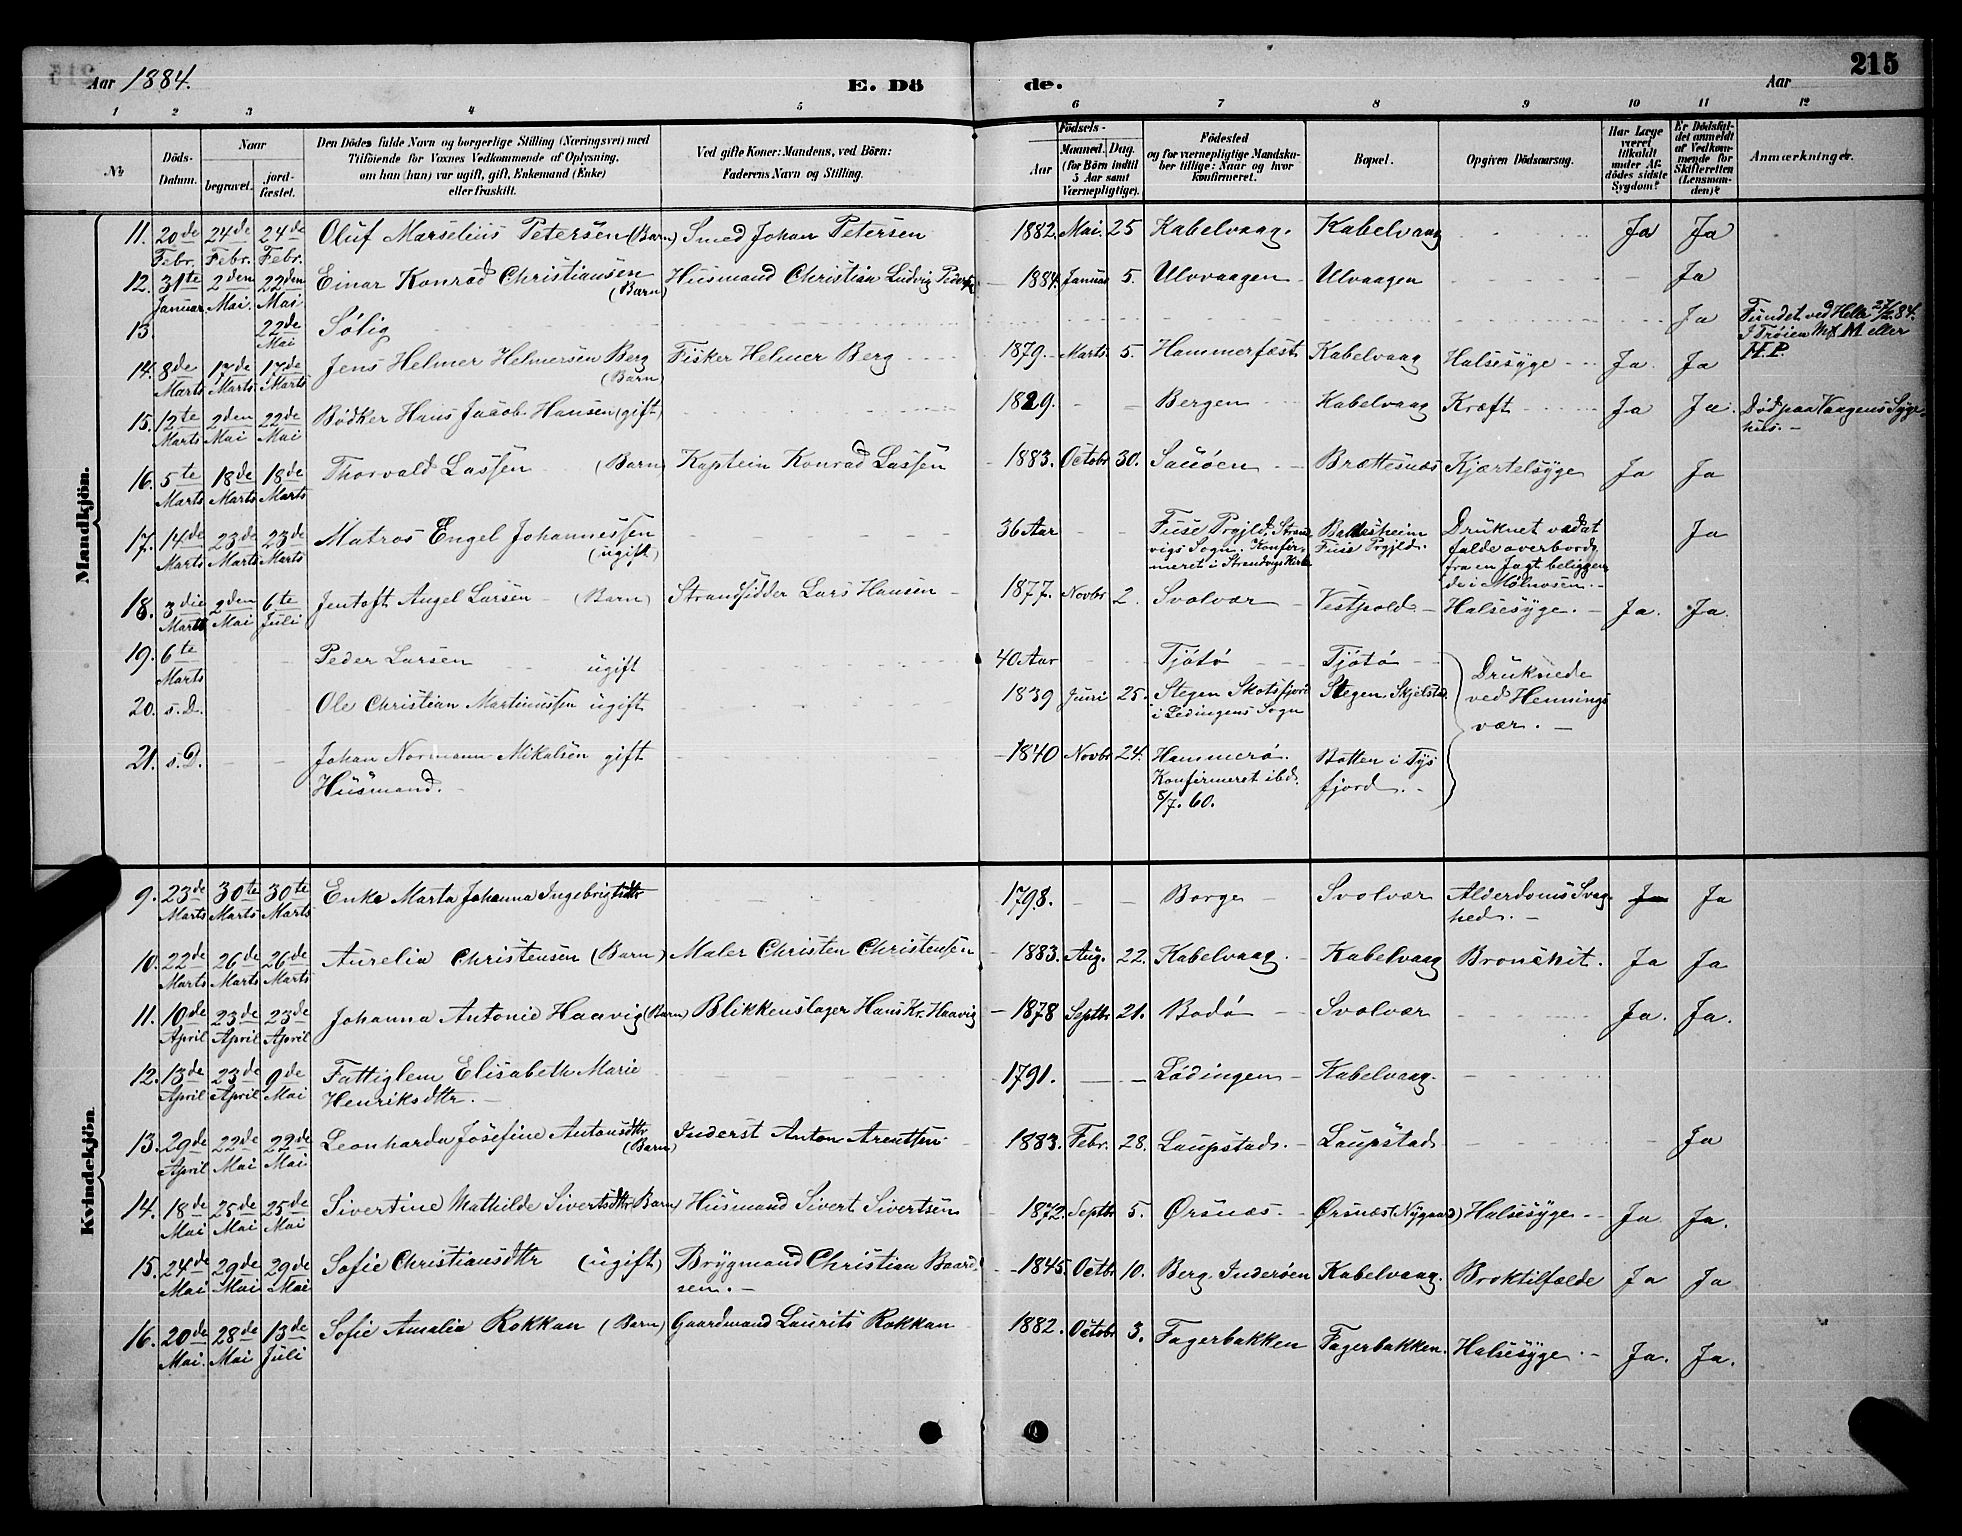 Aar 1884. E. Dö de. Aar 215
1 2 3 4 5 6 7 8 9 10 11 12
No Döds-Datum. Naar begravet. jordfæstet. Den Dödes fulde Navn og borgerlige Stilling (Næringsvei) med Tilföiende for Voxnes Vedkommende af Oplysning, om han (hun) var ugift, gift, Enkemand (Enke) eller fraskilt. Ved gifte Koner: Mandens, ved Börn: Faderens Navn og Stilling. Födsels- Aar Maaned. Dag. (for Börn indtil 5 Aar samt Værnepligtige). Födested og for værnepligtige Mandskaber tillige: Naar og hvor konfirmeret. Bopæl. Opgiven Dödsaarsag. Har Læge været tilkaldt under Afdödes sidste Sygdom? Er Dödsfaldet anmeldt af Vedkommende for Skifteretten (Lensmanden)? Anmærkninger.
Mandkjön.
11. 20de Febr. 24de Febr. 24de Febr. Oluf Marselius Petersen (Barn) Smed Johan Petersen 1882. Mai. 25 Kabelvaag. Kabelvaag Ja Ja
12. 31te Januar 2den Mai. 22den Mai Einar Konrad Christiansen (Barn) Husmand Christian Ludvig Peders 1884. Januar 5. Ulvvaagen Ulvaagen Ja
13. 22de Mai Sølig Ja Fundet ved Helle 27/2 84. I Trøien Mrk M eller H.P.
14. 8de Marts 17de Marts 17de Marts Jens Helmer Helmersen Berg (Barn) Fisker Helmer Berg 1879. Marts. 5. Hammerfest Kabelvaag Halsesyge Ja. Ja
15. 12te Marts 2den Mai 22de Mai Bødker Hans Jacob Hansen (gift) 1829. Bergen Kabelvaag Kræft Ja Ja. Død paa Vaagens Sygehus.
16. 5te Marts 18de Marts 18de Marts Thorvald Lassen (Barn) Kaptein Konrad Lassen 1883. Octobr 30. Sauøen Brættesnæs Kjærtelsyge Ja Ja
17. 14de Marts 23de Marts 23de Marts Matros Engel Johannessen (ugift) 36 Aar Fuse Prgjld, Strandvigs Sogn. Konfirmeret i Strandvigs Kirke Fuse Prgjld. Druknet ved at falde overbord fra en Jagt beliggende i Molnosen. Ja
18. 3die Marts 2den Mai 6te Juli Jentoft Angel Larsen (Barn) Strandsidder Lars Hansen 1877. Novbr 2. Svolvær Vestpold Halsesyge. Ja. Ja.
19. 6te Marts Peder Larsen ugift 40 Aar Tjøtø Tjøtø Druknede ved Henningsvær.
20. s.D. Ole Christian Martinussen ugift 1839 Juni 25. Stegen Skotsfjord i Ledingens Sogn Stegen Skjelstad
21. s.D. Johan Normann Mikalsen gift Husmand. 1840 Novbr 24. Hammerø. Konfirmeret ibd. 8/7. 60. Botten i Tysfjord.
Kvindekjön.
9. 23de Marts 30te Marts 30te Marts Enke Marta Johanna Ingebrigtsdtr 1798. Borge Svolvær Alderdoms Svaghed. Ja Ja
10. 22de Marts 26de Marts 26de Marts Aurelia Christensen (Barn) Maler Christen Christensen 1883. Aug. 22. Kabelvaag. Kabelvaag Bronchit. Ja Ja
11. 10de April 23de April 23de April Johanna Antonie Haavig (Barn) Blikkenslager Hans Kr. Haavig 1878 Septbr 21. Bodø Svolvær Ja. Ja.
12. 13de April 23de April 9de Mai Fattiglem Elisabeth Marie Henriksdtr. 1791. Lødingen Kabelvaag.
13. 29de April 22de Mai 22de Mai Leonharda Josefine Antonsdtr (Barn) Inderst Anton Arentsen 1883. Febr. 28. Laupstad. Laupstad Ja
14. 18de Mai 25de Mai 25de Mai Sivertine Mathilde Sivertsdtr (Barn) Husmand Sivert Sivertsen 1872. Septbr 5. Ørsnæs. Ørsnæs (Nygaard) Halsesyge Ja Ja.
15. 24de Mai 29de Mai 29de Mai Sofie Christiansdtr (ugift) Brygmand Christian Baardsen. 1845. Octbr 10. Berg. Inderøen Kabelvaag. Broktilfælde Ja Ja
16. 20de Mai. 28de Mai 13de Juli Sofie Amalia Rokkan (Barn) Gaardmand Laurits Rokkan 1882. Octobr 3. Fagerbakken Fagerbakken. Halsesyge. Ja. Ja.